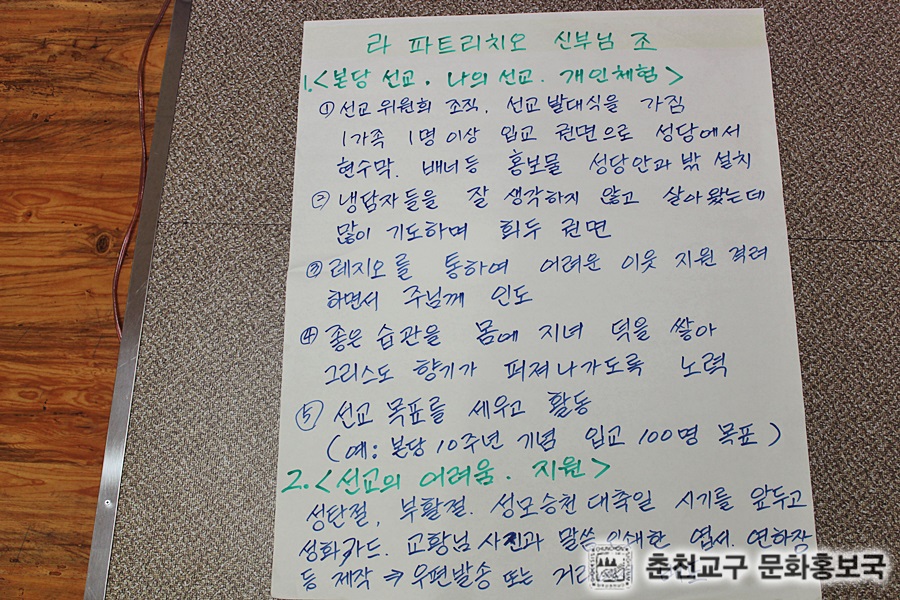 라 파트리치오 신부님 조
1.<본당 선교. 나의 선교. 개인체험>
① 선교 위원회 조직, 선교 발대식을 가짐
1가족 1명 이상 입교 권면으로 성당에서
현수막. 배너 등 홍보물 성당 안과 밖 설치
② 냉담자들을 잘 생각하지 않고 살아왔는데
많이 기도하며 회두 권면
③ 레지오를 통하여 어려운 이웃 지원 격려
하면서 주님께 인도
④ 좋은 습관을 몸에 지녀 덕을 쌓아
그리스도 향기가 퍼져나가도록 노력
⑤ 선교 목표를 세우고 활동
(예: 본당 10주년 기념 입교 100명 목표)
2.<선교의 어려움. 지원>
성탄절, 부활절. 성모승천 대축일 시기를 앞두고
성화카드. 교황님 사진과 말씀 엽서. 연하장
등 제작 ⇒ 우편발송 또는
춘천교구 문화홍보국